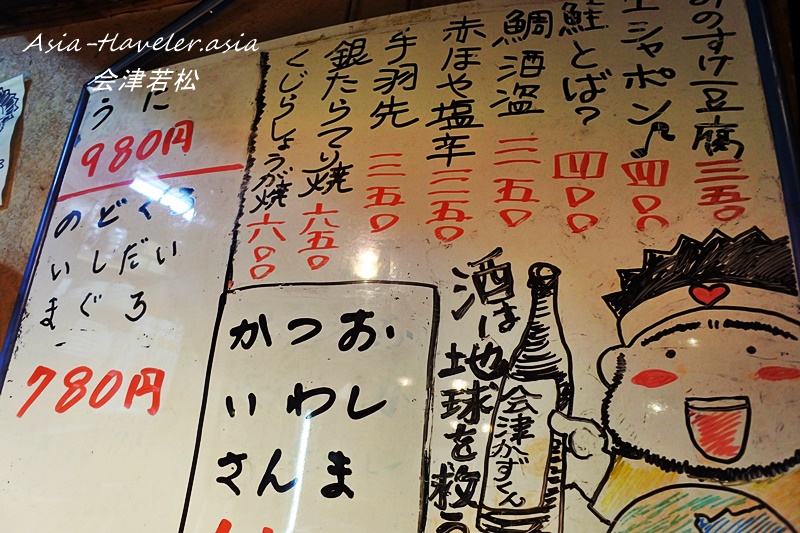 Asia-Haveler.asia
会津若松
みのすけ豆腐 三五〇
エシャポン♪ 四〇〇
鮭とば? 四〇〇
鯛酒盗 三五〇
赤ほや塩辛 三五〇
手羽先 三五〇
銀たらてり焼 六五〇
くじらしょうが焼 六〇〇
うに
980円
のどぐろ
いしだい
まぐろ
780円
かつお
いわし
さんま
酒は地球を救う
会津かずくん